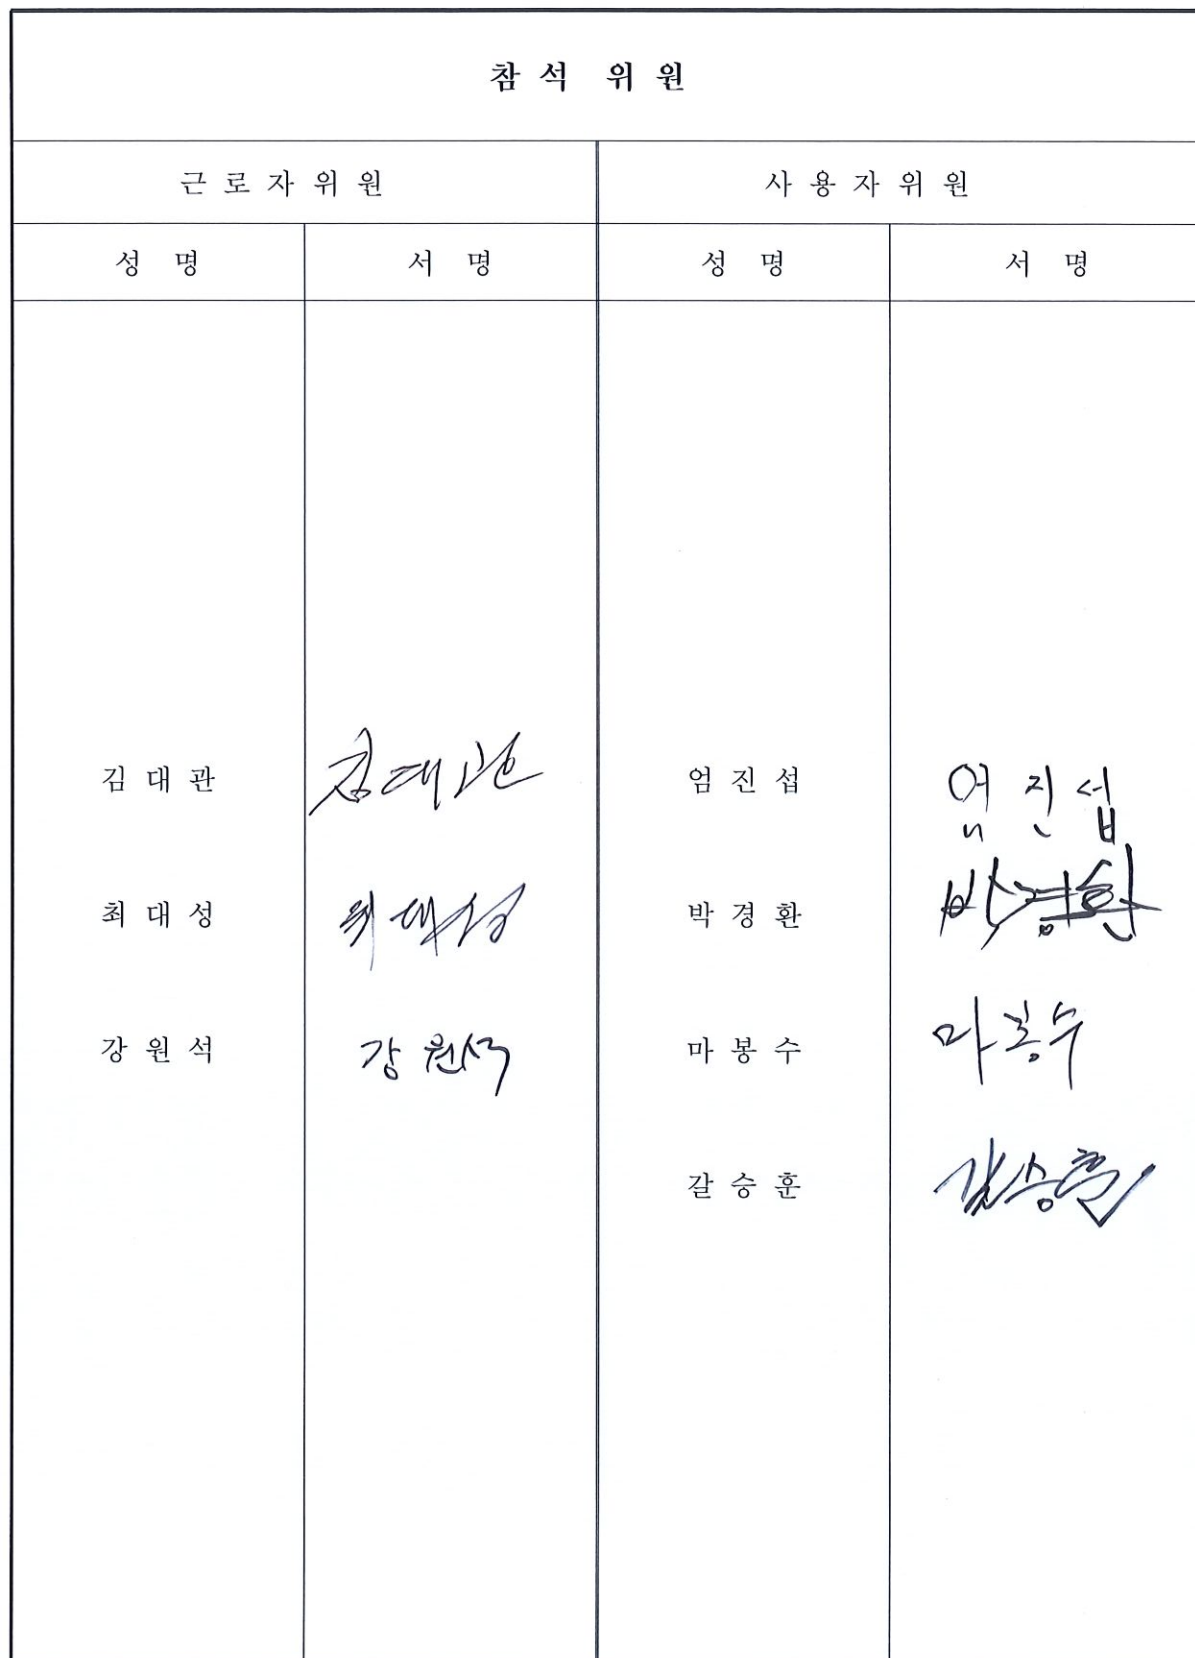 참석 위원
근로자위원 사용자위원
성명 서명 성명 서명
김대관 김대관 엄진섭 엄진섭
최대성 최대성 박경환 박경환
강원석 강원석 마봉수 마봉수
갈승훈 갈승훈